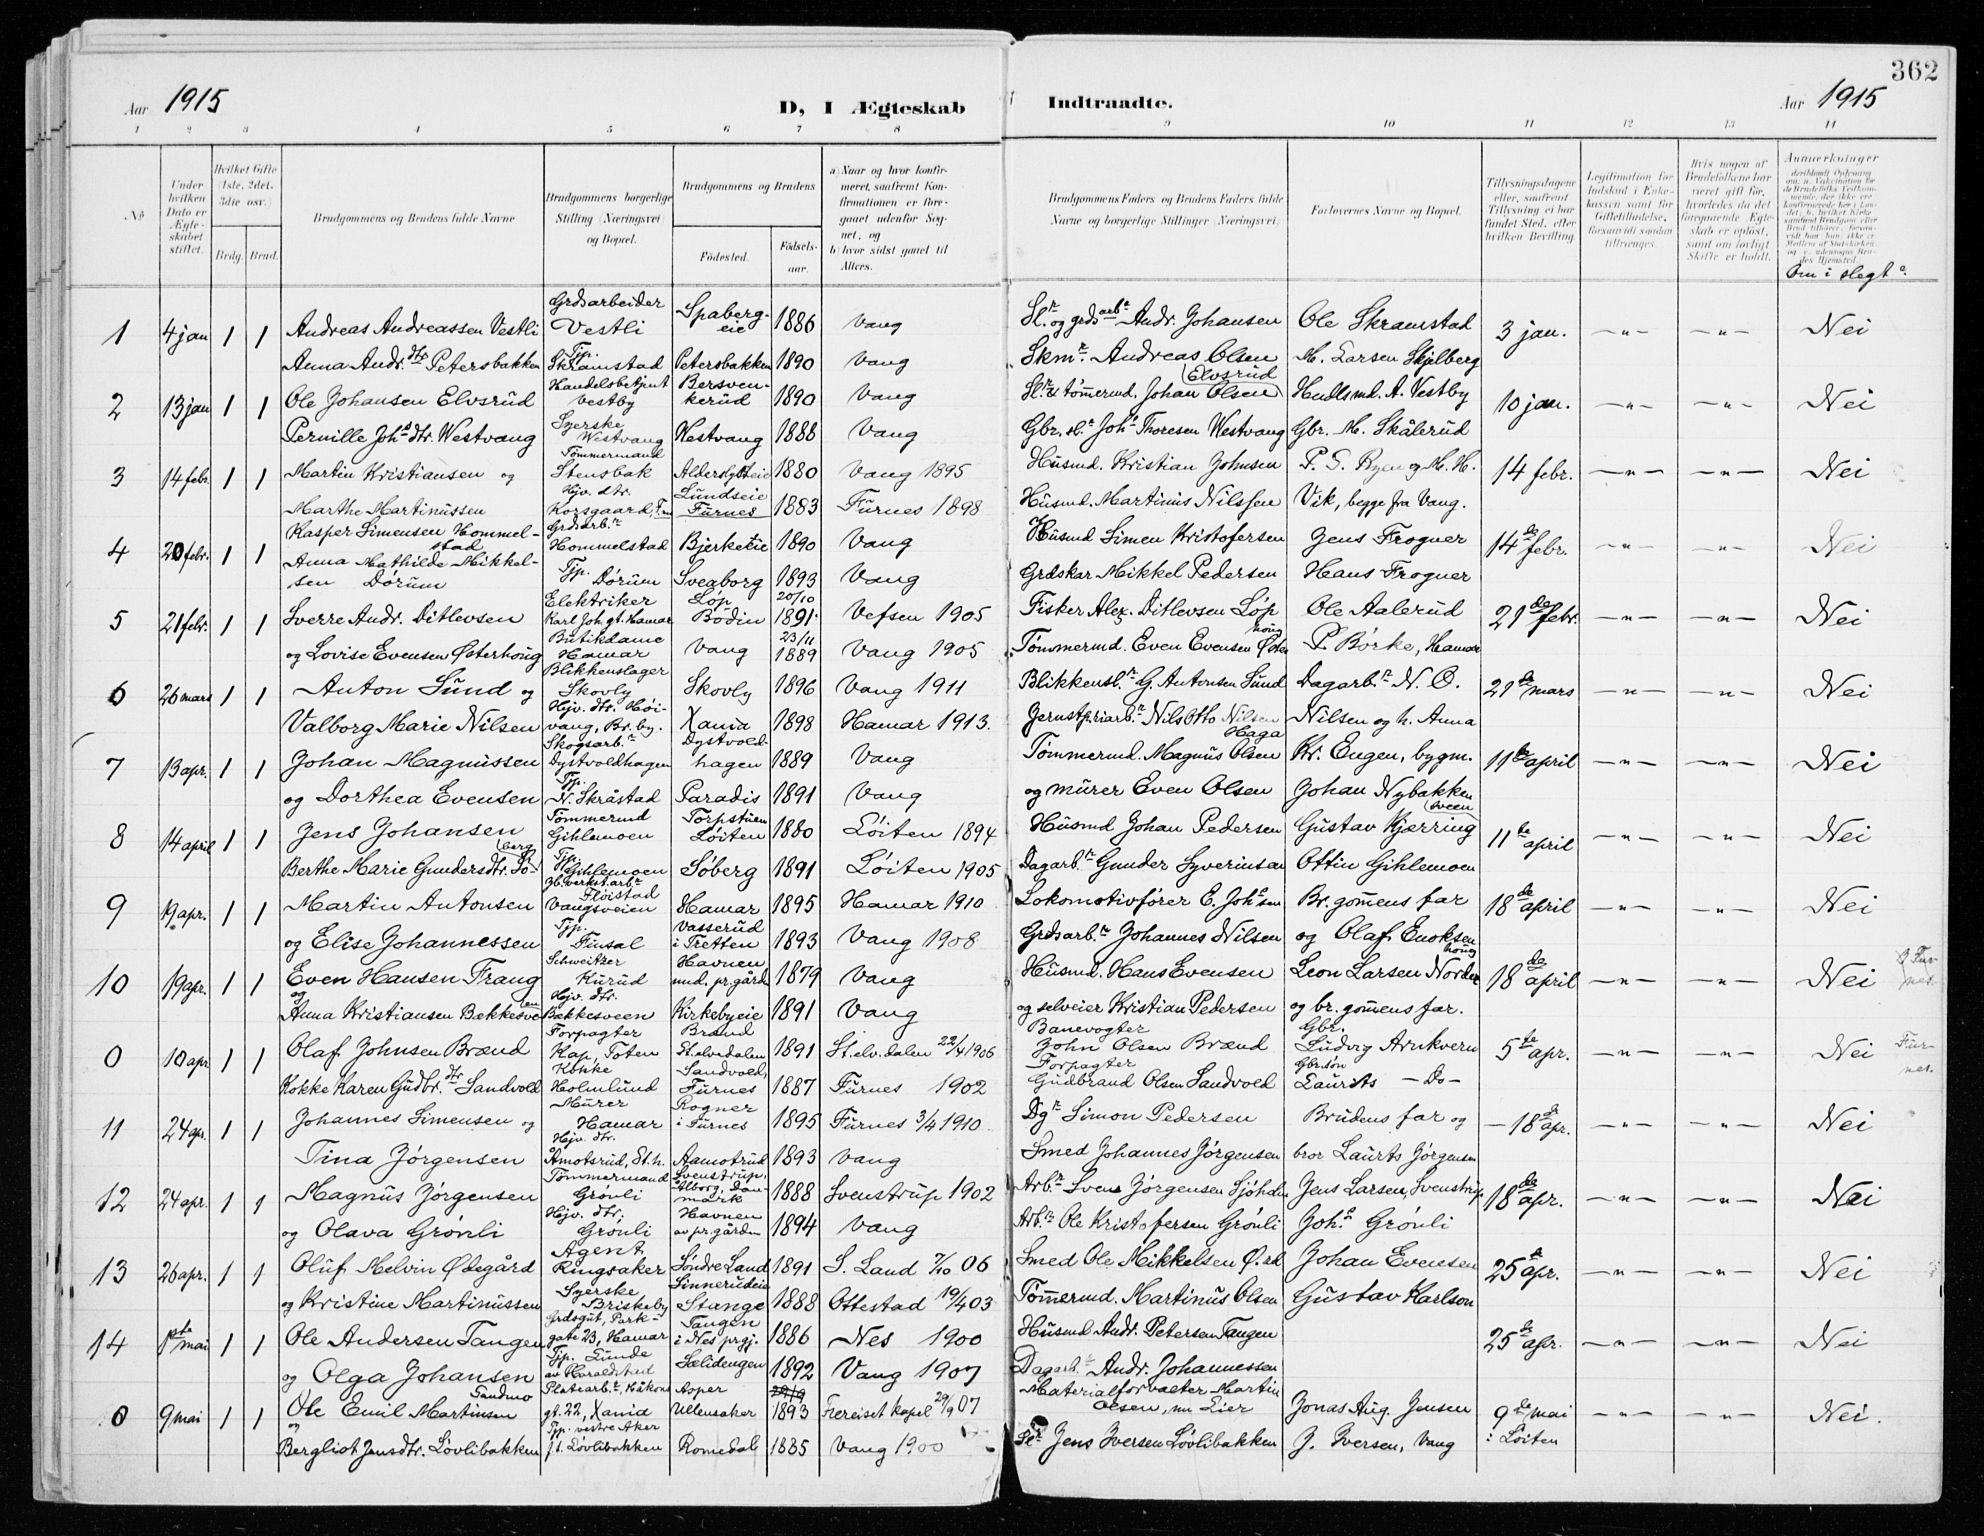 362
Aar 1915
D, I Ægteskab
Indtraadte.
Aar 1915
1 2 3 4 5 6 7 8 9 10 11 12 13 14
No
Under hvilken Dato er Ægteskabet stiftet.
Hvilket Gifte (1ste, 2det, 3die osv.)
Brdg. Brud.
Brudgommens og Brudens fulde Navne
Brudgommens borgerlige Stilling (Næringsvei) og Bopæl.
Brudgommens og Brudens
Födested.
Födsels-aar.
a) Naar og hvor konfirmeret, saafremt Konfirmationen er foregaaet udenfor Sognet, og
b) hvor sidst gaaet til Alters.
Brudgommens Faders og Brudens Faders fulde Navne og borgerlige Stillinger (Næringsvei).
Forlovernes Navne og Bopæl.
Tillysningsdagene eller, saafremt Tillysning ei har fundet Sted, efter hvilken Bevilling.
Legitimation for Indskud i Enkekassen samt for Giftetilladelse, forsaavidt saadan tiltrænges.
Hvis nogen af Brudefolkene har været gift før, hvorledes da det foregaaende Ægteskab er opløst, samt om lovligt Skifte er holdt.
Anmerkninger
Om i slegt
1 4 jan 1 1 Andreas Andreassen Vestli Grdsarbeider Vestli Spaberg-eie 1886 Vang Sl. og grdsarb. Andr. Johansen Ole Skramstad 3 jan. —"— —"— Nei
Anna Andr. dtr Petersbakken Tjp. Skramstad Petersbakken 1890 Vang Skm. Andreas Olsen M. Larsen Skjelberg
2 13 jan 1 1 Ole Johansen Elvsrud Handelsbetjent Vestby Bersven-kerud 1890 Vang Sl. & tømermd. Johan Olsen (Elvsrud) Hndlsmd. A. Vestby 10 jan. —"— —"— Nei
Pernille Joh. dtr. Westvang Syerske Westvang Westvang 1888 Vang Gbr. sl. Joh. Thoresen Westvang Gbr. M. Skålerud
3 14 febr. 1 1 Martin Kristiansen og Tømmermand Stensbak 1880 Vang 1895 Husmd. Kristian Johnsen P. S. Ryen og M. H. 14 febr. —"— —"— Nei
Marthe Martinussen Hjv. dtr. Korsgaard, Lundseie Furnes 1883 Furnes 1898 Husmd. Martinus Nilssen Vik, begge fra Vang.
4 20 febr. 1 1 Kasper Simensen Hommel-stad Grdsarb. Hommelstad Bjerkeeie 1890 Vang Husmd Simen Kristofersen Jens Frogner 14de febr. —"— —"— Nei
Anna Mathilde Mikkel-sen Dørum Tjp. Dørum Sveaborg 1893 Vang Grdskar Mikkel Pedersen Hans Frogner
5 21 febr. 1 1 Sverre Andr. Ditlevsen Elektriker Karl Joh. gt. Hamar Løp Bodin 20/10 1891. Vefsen 1905 Fisker Alex. Ditlevsen Løp Ole Aalerud 21de febr. —"— —"— Nei
og Lovise Evensen Østerhoug Butikdame Hamar Vang 23/11 1889 Vang 1905 Tømmermd. Even Evensen Østerhoug P. Børke, Hamar
6 26 mars 1 1 Anton Sund og Blikkenslager Skovly Skovly 1896 Vang 1911 Blikkensl. G. Antonsen Sund Dagarb. N. O. 21de mars —"— —"— Nei
Valborg Marie Nilsen Hjv. dtr. Høi-vang, Br. by. Xania 1898 Hamar 1913. Jernstøpriarb. Nils Otto Nilsen Haga Nilsen og h. Anna
7 13 apr. 1 1 Johan Magnussen Skogsarb. Dystvoldhagen Dystvold-hagen 1889 Vang Tømmermd. Magnus Olsen Kr. Engen, bygm. 11te april —"— —"— Nei
og Dorthea Evensen Tjp. N. Skråstad Paradis 1891 Vang og murer Even Olsen Johan Nybakken
8 14 april 1 1 Jens Johansen Tømmermd Gihlemoen Torpstuen Løiten 1880 Løiten 1894 Husmd Johan Pedersen Gustav Kjærring (sveen 11te april —"— —"— Nei
Berthe Marie Gundersdtr. Søberg Tjp. Gihlemoen Søberg 1891 Løiten 1905 Dagarb. Gunder Syverinsen Ottin Gihlemoen
9 19 apr. 1 1 Martin Antonsen Vangsveien Hamar 1895 Hamar 1910 Lokomotivfører E. Johsen Br. gomens far 18de april —"— —"— Nei
og Elise Johannessen Tjp. Finsal Vasserud i Tretten 1893 Vang 1908 Grdsarb. Johannes Nilsen og Olaf Enoksen
10 19 apr. 1 1 Even Hansen Frang Schweitzer Kurud Havnen und. pr. gård 1879 Vang Husmd. Hans Evensen Leon Larsen Nordenhoug 18de april —"— —"— Nei Fur-nes.
og Anna Kristiansen Bækkesveen Hjv. dtr. Bækkesveen Kirkebyeie 1891 Vang og selveier Kristian Pedersen og br. gomens far.
0 10 apr 1 1 Olaf Johnsen Brænd Forpagter Kap, Toten Brænd St. elvedalen 1891 St. elv. dalen 22/4 1906 Banevogter John Olsen Brænd Gbr. Ludvig Arnkvern 5te apr. —"— —"— Nei Fur-nes.
Kokke Karen Gudbr. dtr Sandvold Kokke Holmlund Sandvold, Furnes 1887 Furnes 1902 Forpagter Gudbrand Olsen Sandvold Gbr. søn Laurits —Do—
11 24 apr. 1 1 Johannes Simensen og Murer Hamar Rogner i Furnes 1895 Furnes 3/4 1910 Dg. Simon Pedersen Brudens far og 18de apr. —"— —"— Nei
Tina Jørgensen Hjv. dtr. Åmotsrud, St. h. Aamotrud 1893 Vang Smed Johannes Jørgensen bror Laurits Jørgensen
12 24 apr. 1 1 Magnus Jørgensen Tømmermand Grønli Svenstrup, Ålborg, Dan-mark 1888 Svenstrup 1902 Arb. Svend Jørgensen Sjøholm Jens Larsen, Svenstrup 18de apr. —"— —"— Nei
og Olava Grønli Hjv. dtr. Grønli Havnen av pr. gården 1894 Vang Arb. Ole Kristofersen Grønli Joh. Grønli
13 26 apr. 1 1 Oluf Melvin Ødegård Agent Ringsaker Søndre Land 1891 S. Land 7/10 06 Smed Ole Mikkelsen Ø. rd Johan Evensen 25de apr. —"— —"— Nei
og Kristine Martinussen Syerske Briskeby Linnerudeie Stange 1888 Ottestad 19/4 03 Tømmermd. Martinus Olsen Gustav Karlson
14 1ste mai 1 1 Ole Andersen Tangen Grdsgut, Park-gate 23, Hamar Tangen i Nes prgj. 1886 Nes 1900 Husmd Andr. Petersen Tangen 25de apr. —"— —"— Nei
og Olga Johansen Tjp. Lunde av Haraldstad Sælidengen 1892 Vang 1907 Dagarb. Andr. Johannessen
0 9 mai 1 1 Ole Emil Martinsen Sandmo Platearb., Håkons gt. 22, Xania Asper Ullensaker 29/9 1893 Frereiset kapel 29/9 07 Materialforvalter Martin Olsen, nu Lier Jonas Aug. Jensen 9de mai i Løiten —"— —"— Nei.
og Bergliot Jensdtr. Løvlibakken Tjp. vestre Aker f. t. Løvlibakken Romedal 1885 Vang 1900 Sl. Jens Iversen Løvlibakken J. Iversen, Vang